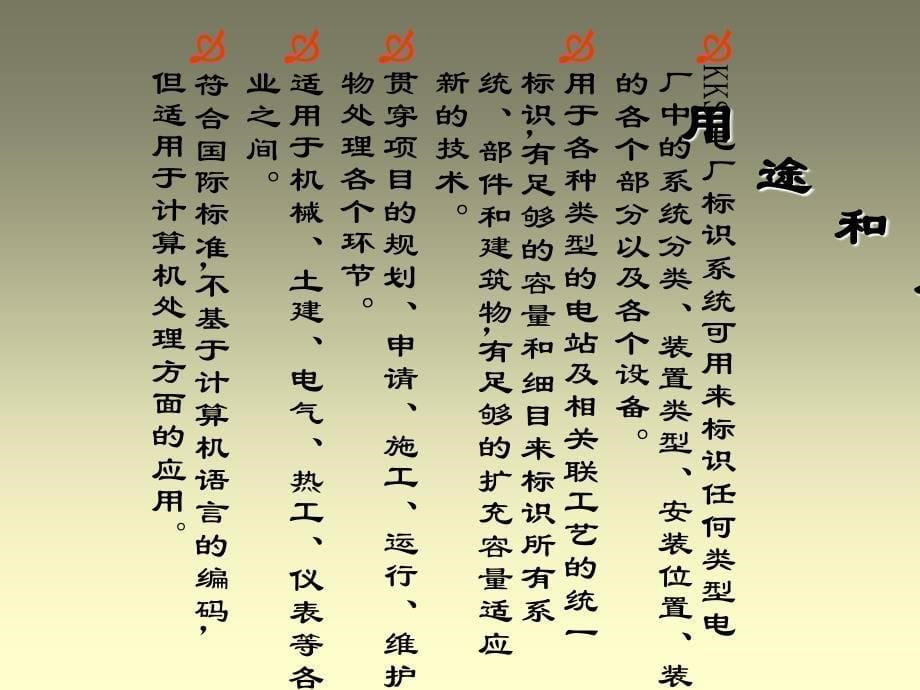 用途和
KKS电厂标识系统可用来标识任何类型电
厂中的系统分类、装置类型、安装位置、装
的各个部分以及各个设备。
用于各种类型的电站及相关联工艺的统一
标识,有足够的容量和细目来标识所有系
统、部件和建筑物,有足够的扩充容量适应
新的技术。
贯穿项目的规划、申请、施工、运行、维护
物处理各个环节。
适用于机械、土建、电气、热工、仪表等各
业之间。
符合国际标准,不基于计算机语言的编码,
但适用于计算机处理方面的应用。